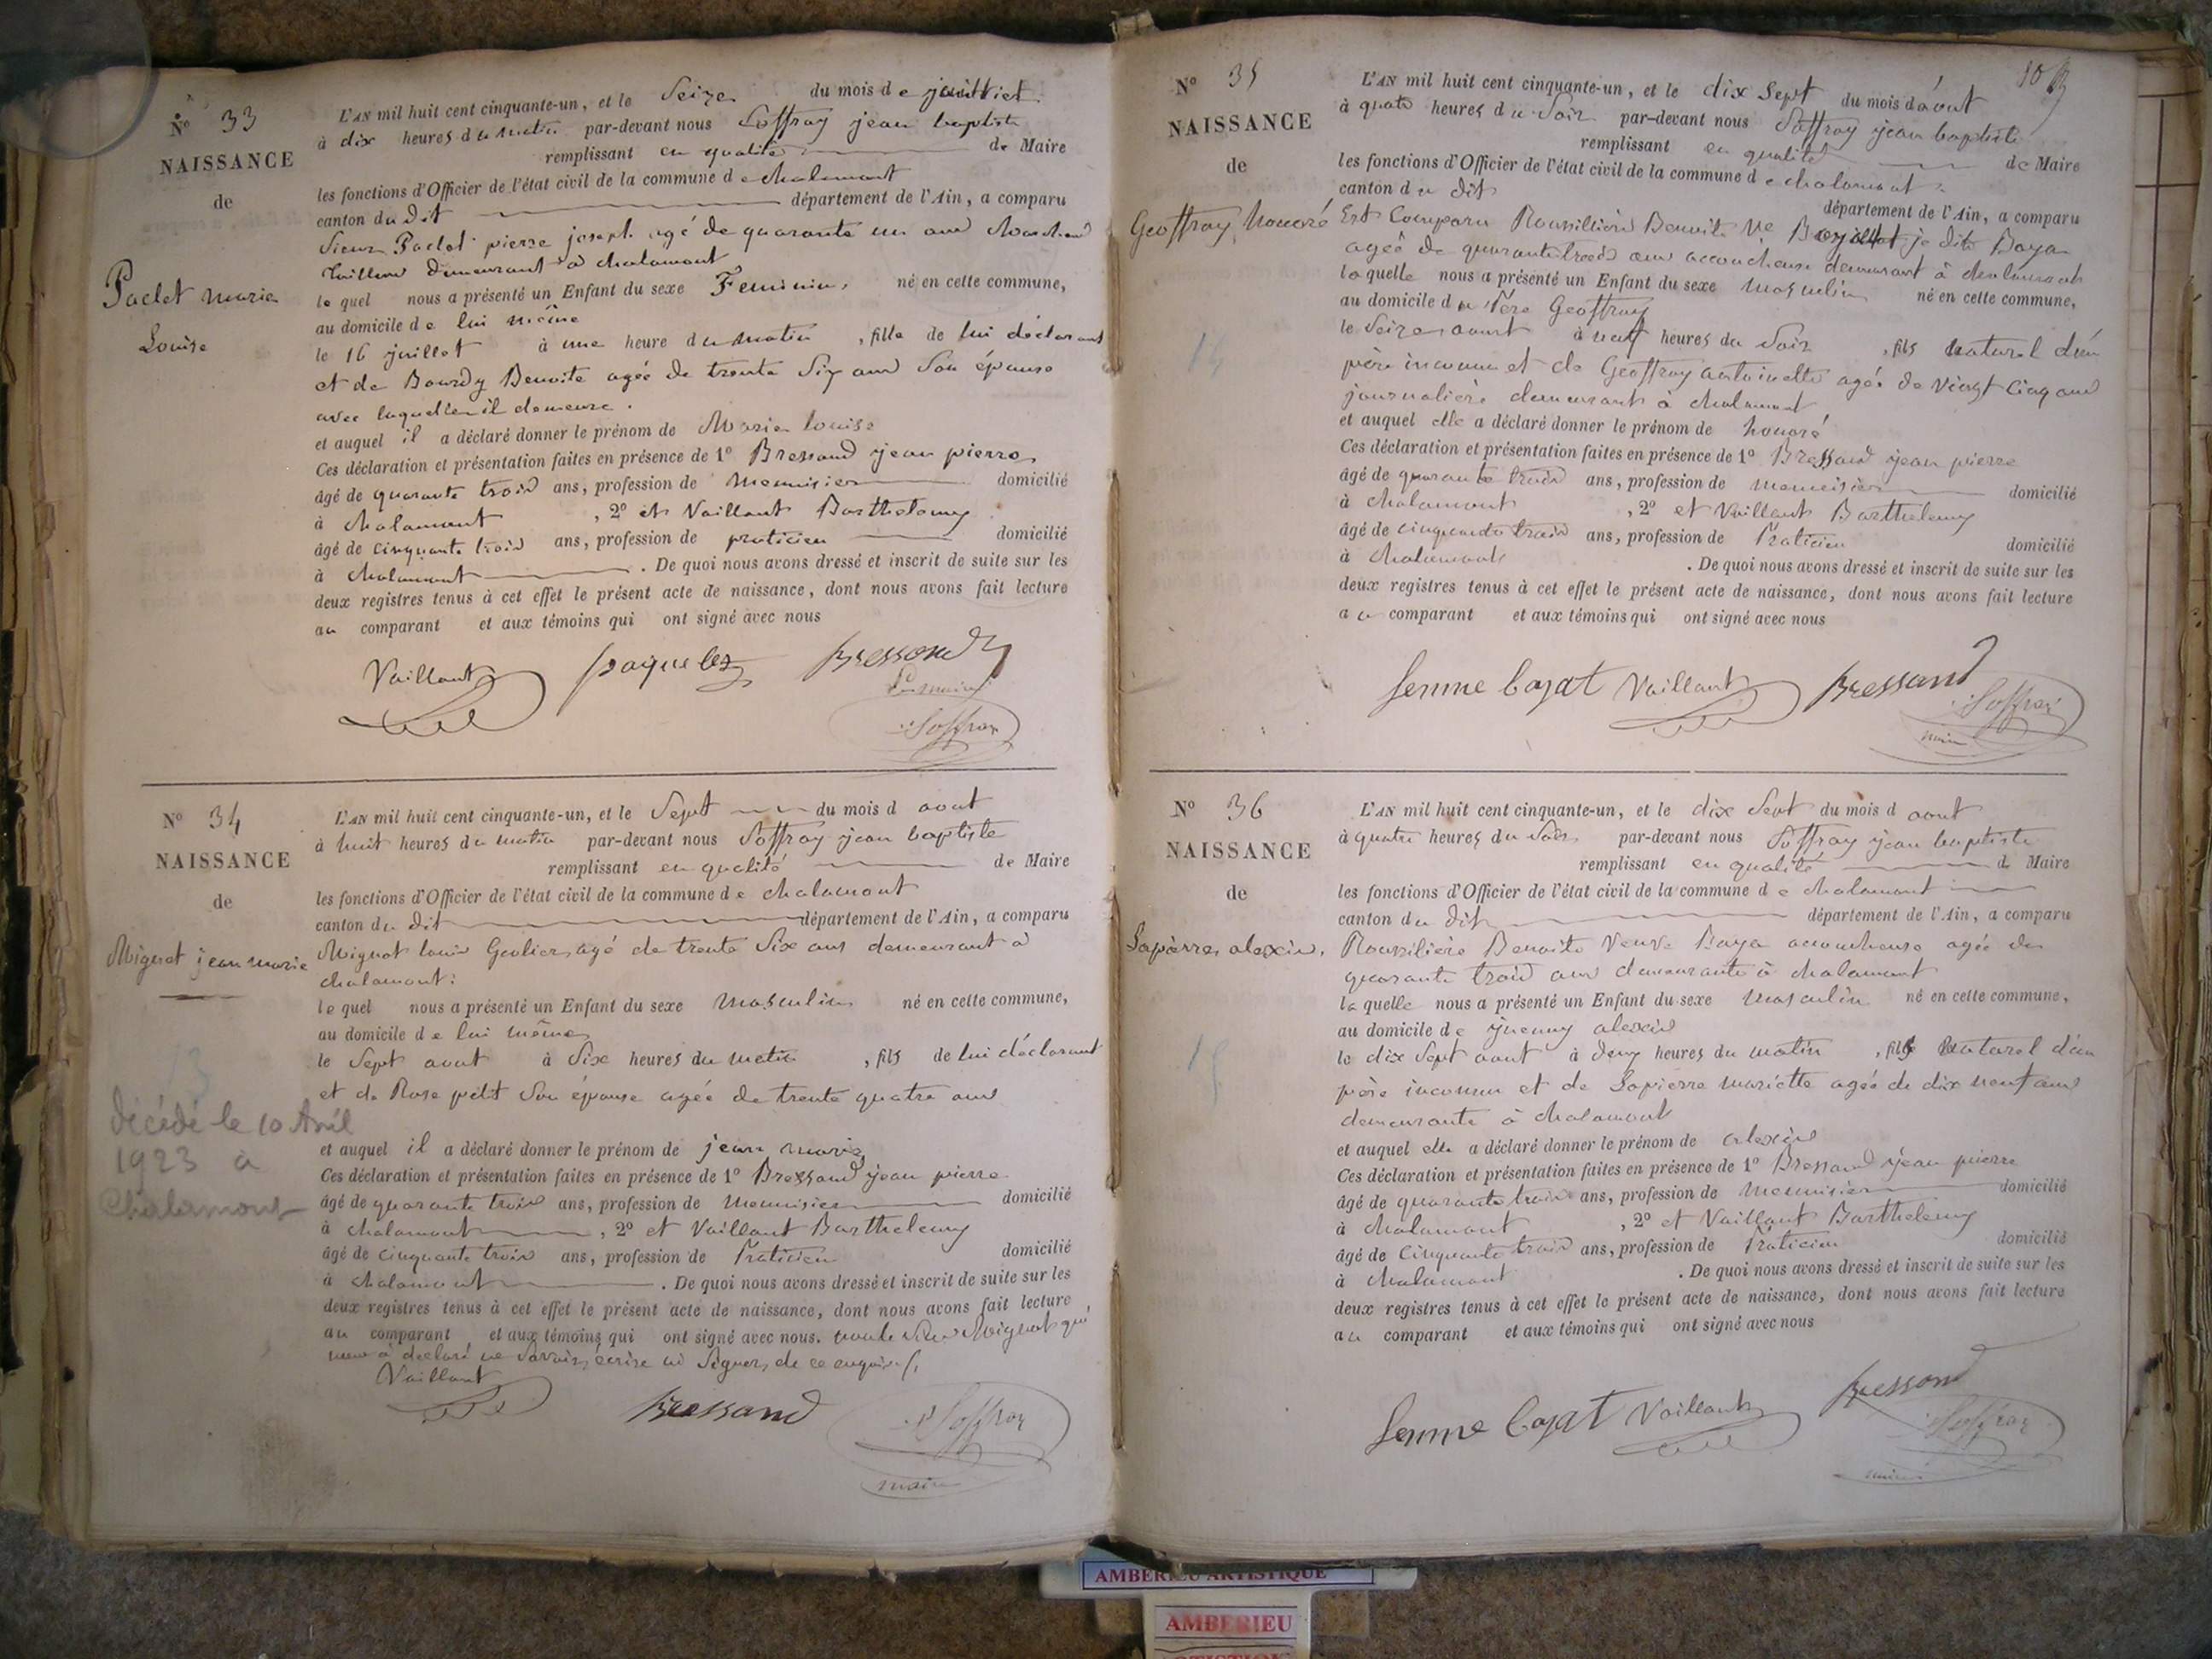 N° 33
NAISSANCE
de
Paclet marie
Louise
L'AN mil huit cent cinquante-un, et le Seize du mois de juillet
à dix heures du matin par-devant nous Soffray jean baptiste
remplissant en qualité de Maire
les fonctions d'Officier de l'état civil de la commune de chalamont
canton du dit département de l'Ain, a comparu
Sieur Paclet pierre joseph agé de quarante un ans Marchand
Tailleur demeurant à chalamont
le quel nous a présenté un Enfant du sexe Feminin, né en cette commune,
au domicile de lui même
le 16 juillet à une heure du matin, fille de lui déclarant
et de Bourdy Benoite agée de trente Six ans Son épouse
avec laquelle il demeure.
et auquel il a déclaré donner le prénom de Marie louise
Ces déclaration et présentation faites en présence de 1° Bressand jean pierre
âgé de quarante trois ans, profession de Menuisier domicilié
à chalamont, 2° et Vaillant Barthelemy
âgé de cinquante trois ans, profession de praticien domicilié
à chalamont. De quoi nous avons dressé et inscrit de suite sur les
deux registres tenus à cet effet le présent acte de naissance, dont nous avons fait lecture
au comparant et aux témoins qui ont signé avec nous
Vaillant Bressand
Le maire
Soffray
N° 34
NAISSANCE
de
Mignot jean marie
13
décédé le 10 Avril
1923 à
Chalamont
L'AN mil huit cent cinquante-un, et le Sept du mois d aout
à huit heures du matin par-devant nous Soffray jean baptiste
remplissant en qualité de Maire
les fonctions d'Officier de l'état civil de la commune de chalamont
canton du dit département de l'Ain, a comparu
Mignot louis Geolier, agé de trente Six ans demeurant à
chalamont:
le quel nous a présenté un Enfant du sexe Masculin né en cette commune,
au domicile de lui même
le Sept aout à Six heures du matin, fils de lui déclarant
et de Rose petit Son épouse agée de trente quatre ans
et auquel il a déclaré donner le prénom de jean marie
Ces déclaration et présentation faites en présence de 1° Bressand jean pierre
âgé de quarante trois ans, profession de Menuisier domicilié
à chalamont, 2° et Vaillant Barthelemy
âgé de cinquante trois ans, profession de Praticien domicilié
à chalamont. De quoi nous avons dressé et inscrit de suite sur les
deux registres tenus à cet effet le présent acte de naissance, dont nous avons fait lecture
au comparant et aux témoins qui ont signé avec nous. Mignot qui
nous a declaré ne Savoir écrire ni Signer, de ce enquis
Vaillant Bressand Soffray
maire
N° 35
NAISSANCE
de
Geoffray honoré
14
L'AN mil huit cent cinquante-un, et le dix Sept du mois d'août
à quatre heures du Soir par-devant nous Soffray jean baptiste
remplissant en qualité de Maire
les fonctions d'Officier de l'état civil de la commune de chalamont
canton du dit département de l'Ain, a comparu
Est Comparu Benoite
agée de quarante trois ans accoucheuse demeurant à chalamont
laquelle nous a présenté un Enfant du sexe Masculin né en cette commune,
au domicile du Geoffray
le Seize aout à neuf heures du Soir, fils naturel d'un
père inconnu et de Geoffray antoinette agée de Vingt Cinq ans
journalière demeurant à chalamont
et auquel elle a déclaré donner le prénom de honoré
Ces déclaration et présentation faites en présence de 1° Bressand jean pierre
âgé de quarante trois ans, profession de menuisier domicilié
à chalamont, 2° et Vaillant Barthelemy
âgé de cinquante trois ans, profession de Praticien domicilié
à chalamont. De quoi nous avons dressé et inscrit de suite sur les
deux registres tenus à cet effet le présent acte de naissance, dont nous avons fait lecture
au comparant et aux témoins qui ont signé avec nous
femme Vaillant Bressand
Soffray
maire
N° 36
NAISSANCE
de
Lapierre alexis.
15
L'AN mil huit cent cinquante-un, et le dix Sept du mois d aout
à quatre heures du Soir par-devant nous Soffray jean baptiste
remplissant en qualité de Maire
les fonctions d'Officier de l'état civil de la commune de chalamont
canton du dit département de l'Ain, a comparu
Benoite Veuve accoucheuse agée de
quarante trois ans demeurante à chalamont
laquelle nous a présenté un Enfant du sexe Masculin né en cette commune,
au domicile de alexis
le dix Sept aout à deux heures du matin, fils naturel d'un
père inconnu et de Lapierre mariette agée de dix neuf ans
demeurante à chalamont
et auquel elle a déclaré donner le prénom de alexis
Ces déclaration et présentation faites en présence de 1° Bressand jean pierre
âgé de quarante trois ans, profession de Menuisier domicilié
à chalamont, 2° et Vaillant Barthelemy
âgé de Cinquante trois ans, profession de Praticien domicilié
à chalamont. De quoi nous avons dressé et inscrit de suite sur les
deux registres tenus à cet effet le présent acte de naissance, dont nous avons fait lecture
au comparant et aux témoins qui ont signé avec nous
femme Vaillant Bressand
Soffray
maire
AMBERIEU ARTISTIQUE
AMBERIEU